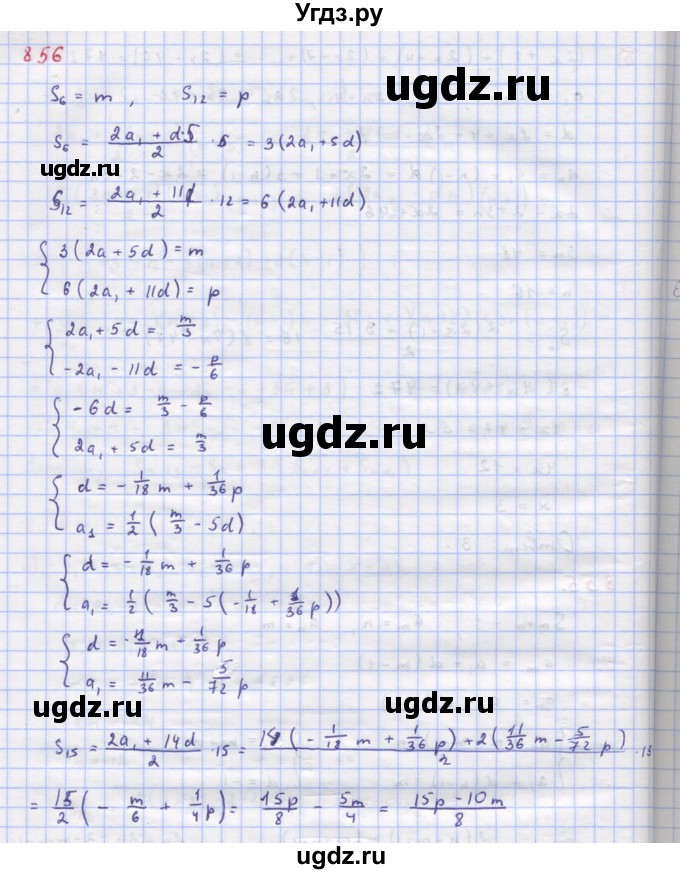 Угдз.ру
856
S₆ = m , S₁₂ = p
ugdz.ru
S₆ = (2a₁ + d·5)/2 · 6 = 3(2a₁+5d)
ugdz.ru
S₁₂ = (2a₁ + 11d)/2 · 12 = 6(2a₁+11d)
{ 3(2a + 5d) = m
6(2a₁ + 11d) = p
{ 2a₁ + 5d = m/3
-2a₁ - 11d = - p/6
{ -6d = m/3 - p/6
2a₁ + 5d = m/3
ugdz.ru
{ d = - 1/18 m + 1/36 p
a₁ = 1/2 ( m/3 - 5d)
{ d = - 1/18 m + 1/36 p
a₁ = 1/2 ( m/3 - 5(- 1/18 + 1/36 p))
ugdz.ru
{ d = - 1/18 m + 1/36 p
a₁ = 11/36 m - 5/72 p
ugdz.ru
ugdz.ru
S₁₅ = (2a₁ + 14d)/2 · 15 = (14(- 1/18 m + 1/36 p) + 2(11/36 m - 5/72 p))/2 · 15
= 15/2 (- m/6 + 1/4 p) = 15p/8 - 5m/4 = (15p - 10m)/8
ugdz.ru